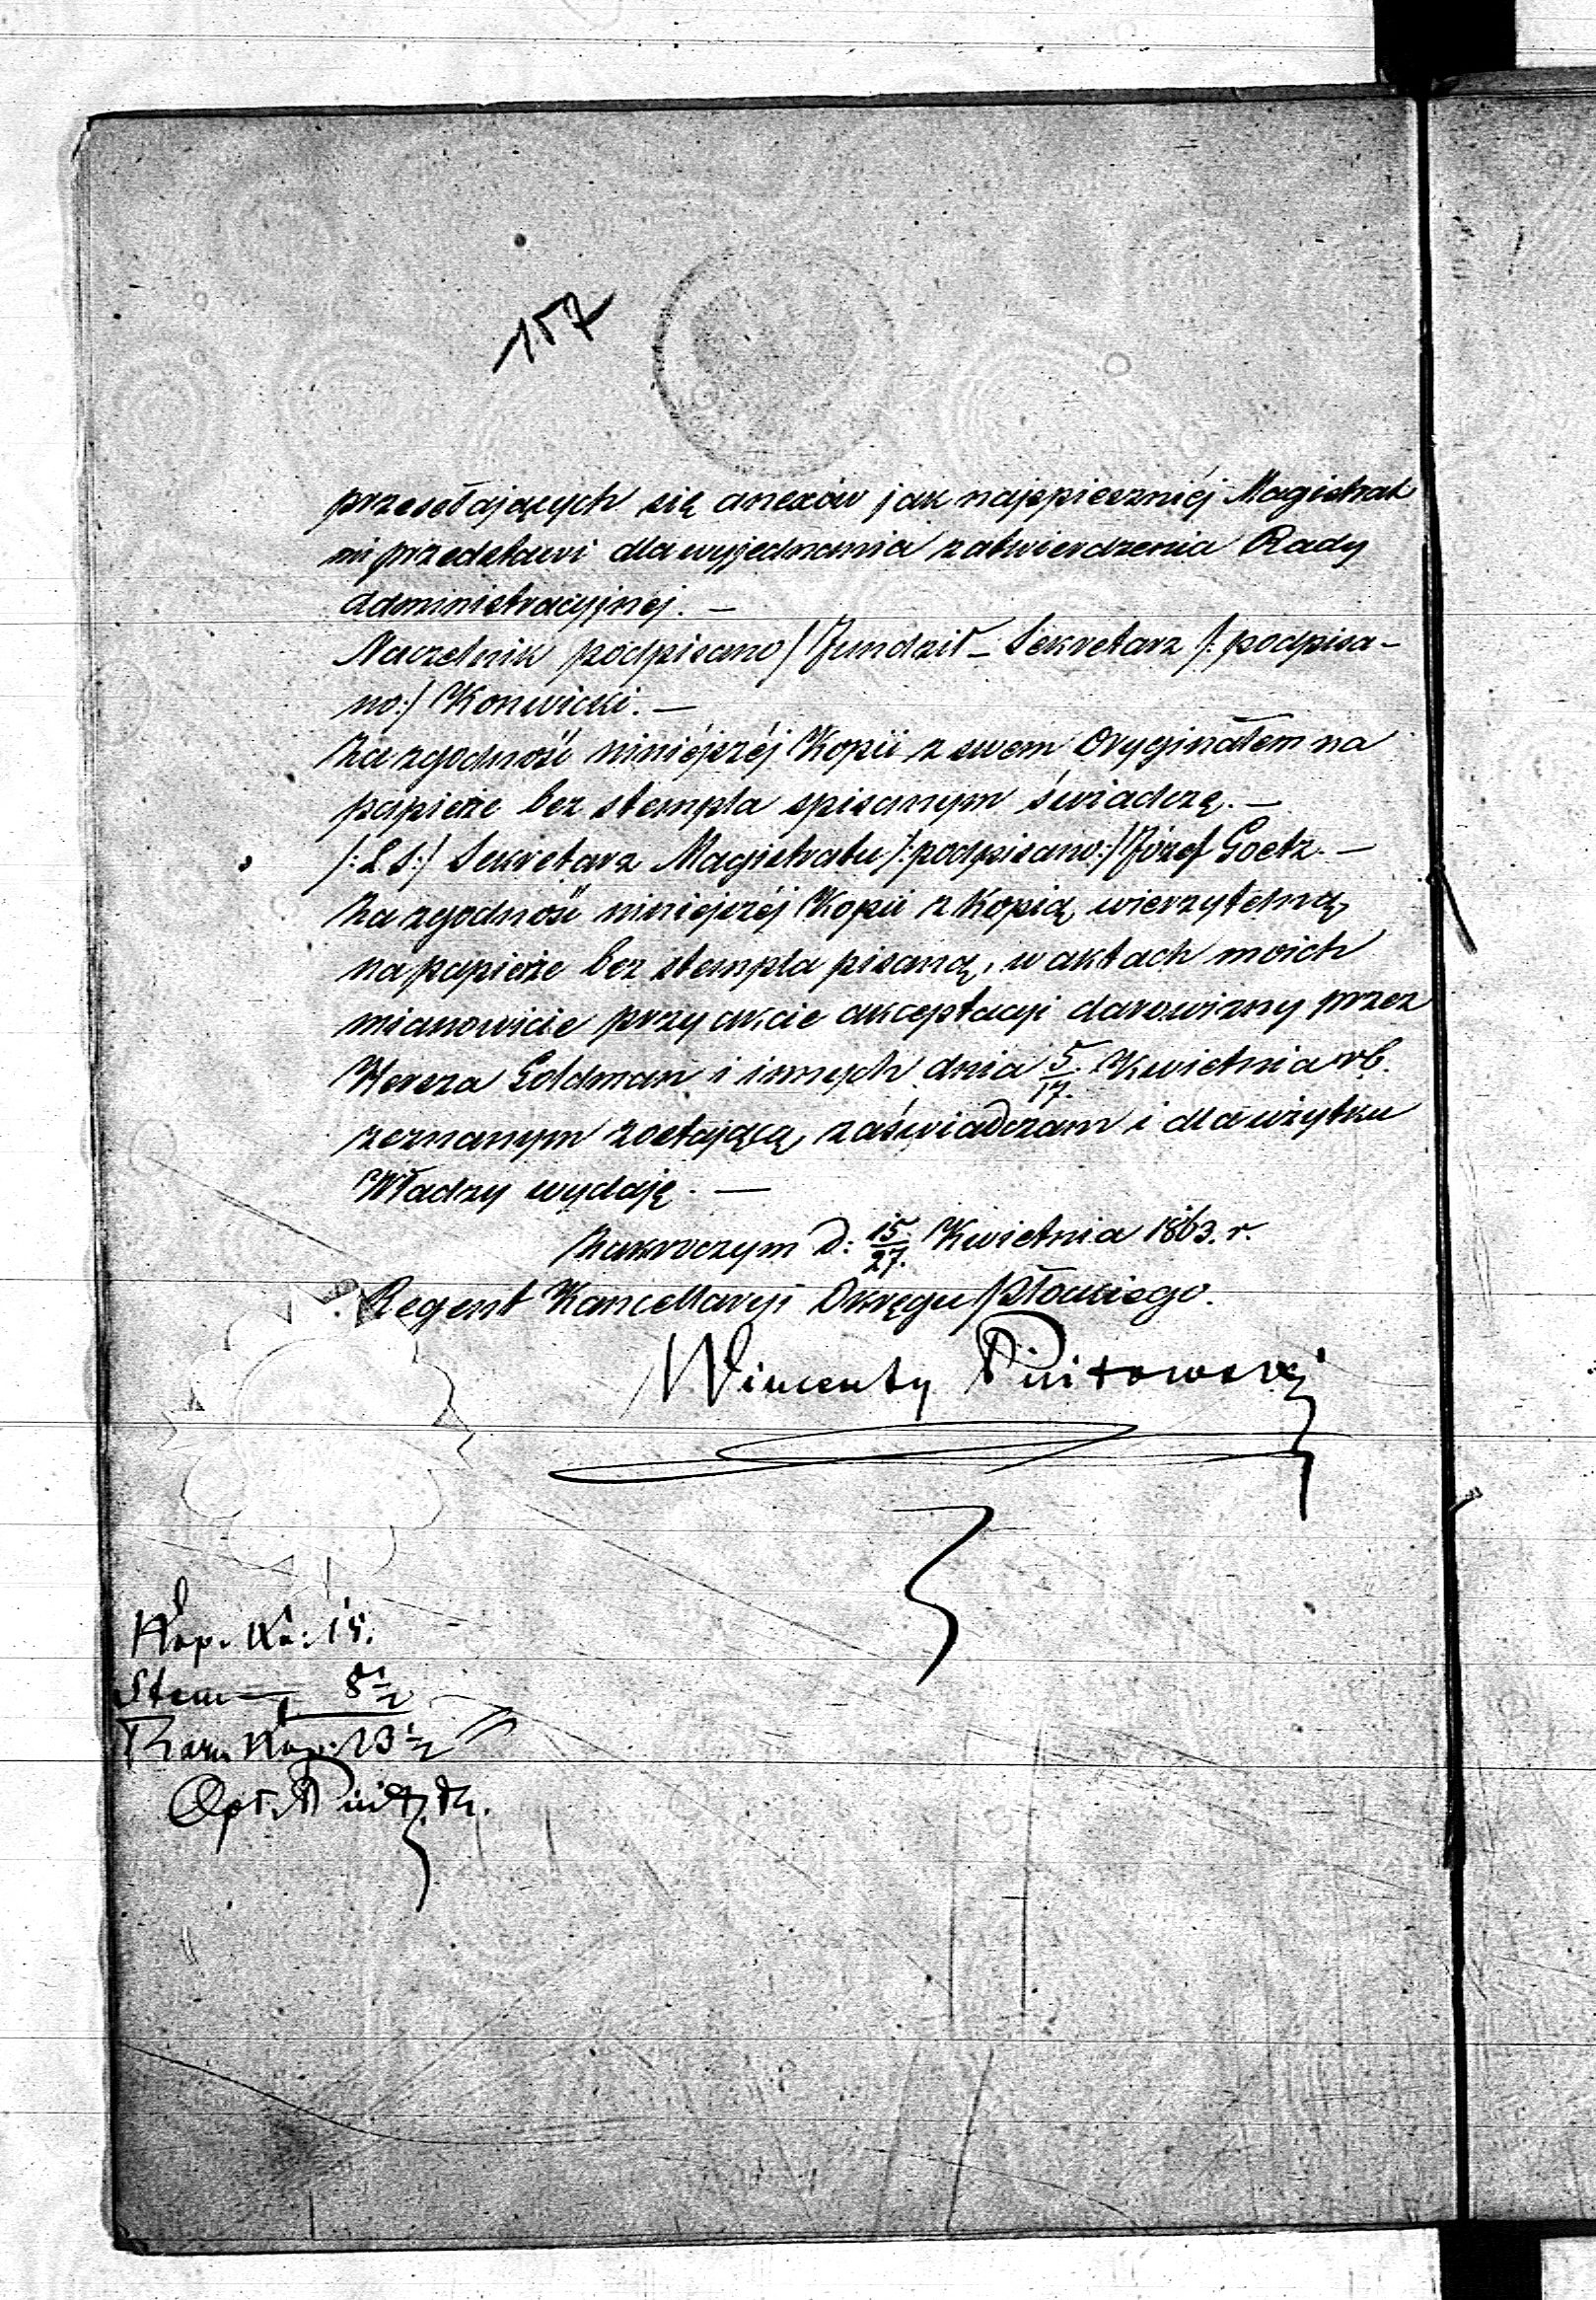 157
przesełających się anexów jak najspieszniéj Magistrat
mi przedstawi dla wyjednania zatwierdzenia Rady
Administracyjnej. —
Naczelnik podpisano/ Jundził – Sekretarz /: podpisa-
no:/ Konwicki. —
Za zgodność niniéjszéj Kopii z swem Oryginałem na
papierze bez stempla spisanym świadczę. —
/: L. S:/ Sekretarz Magistratu /: podpisano:/ Józef Goetz. —
Za zgodność niniejszéj Kopii z Kopią wierzytelną,
na papierze bez stempla pisaną, w aktach moich
mianowicie przy akcie akceptacyi darowizny przez
Hersza Goldman i innych dnia 5/17. Kwietnia rb.
zeznanym zostającą, zaświadczam i dla użytku
Władzy wydaję. —
Zakroczym d: 15/27. Kwietnia 1863. r.
Regent Kancellaryi Okręgu Płockiego.
Wincenty
Kop. 15.
Stem 8½
Raz. Kop. 23½